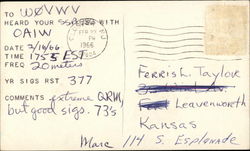 TO WØVWV
HEARD YOUR SSB SIGS WITH
OA1W
DATE 2/16/66
TIME 1755 EST
FREQ 20 meters
YR SIGS RST 377
COMMENTS extreme QRM,
but good sigs. 73's
Marc
FEB
PM
1966
FERRIS L. TAYLOR
LEAVENWORTH
KANSAS
114 S. Esplanade